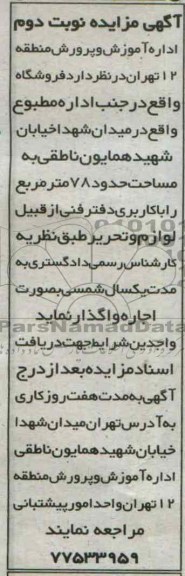 آگهی مزایده نوبت دوم
اداره آموزش و پرورش منطقه
۱۲ تهران در نظر دارد فروشگاه
واقع در جنب اداره مطبوع
واقع در میدان شهدا خیابان
شهید همایون ناطقی به
مساحت حدود ۷۸ متر مربع
را با کاربری دفتر فنی از قبیل
لوازم و تحریر طبق نظریه
کارشناس رسمی دادگستری به
مدت یکسال شمسی بصورت
اجاره واگذار نماید
ParsNamadData
واجدین شرایط جهت دریافت
اسناد مزایده بعد از درج
آگهی به مدت هفت روز کاری
به آدرس تهران میدان شهدا
خیابان شهید همایون ناطقی
اداره آموزش و پرورش منطقه
۱۲ تهران واحد امور پیشتبانی
مراجعه نمایند
۷۷۵۳۳۹۵۹